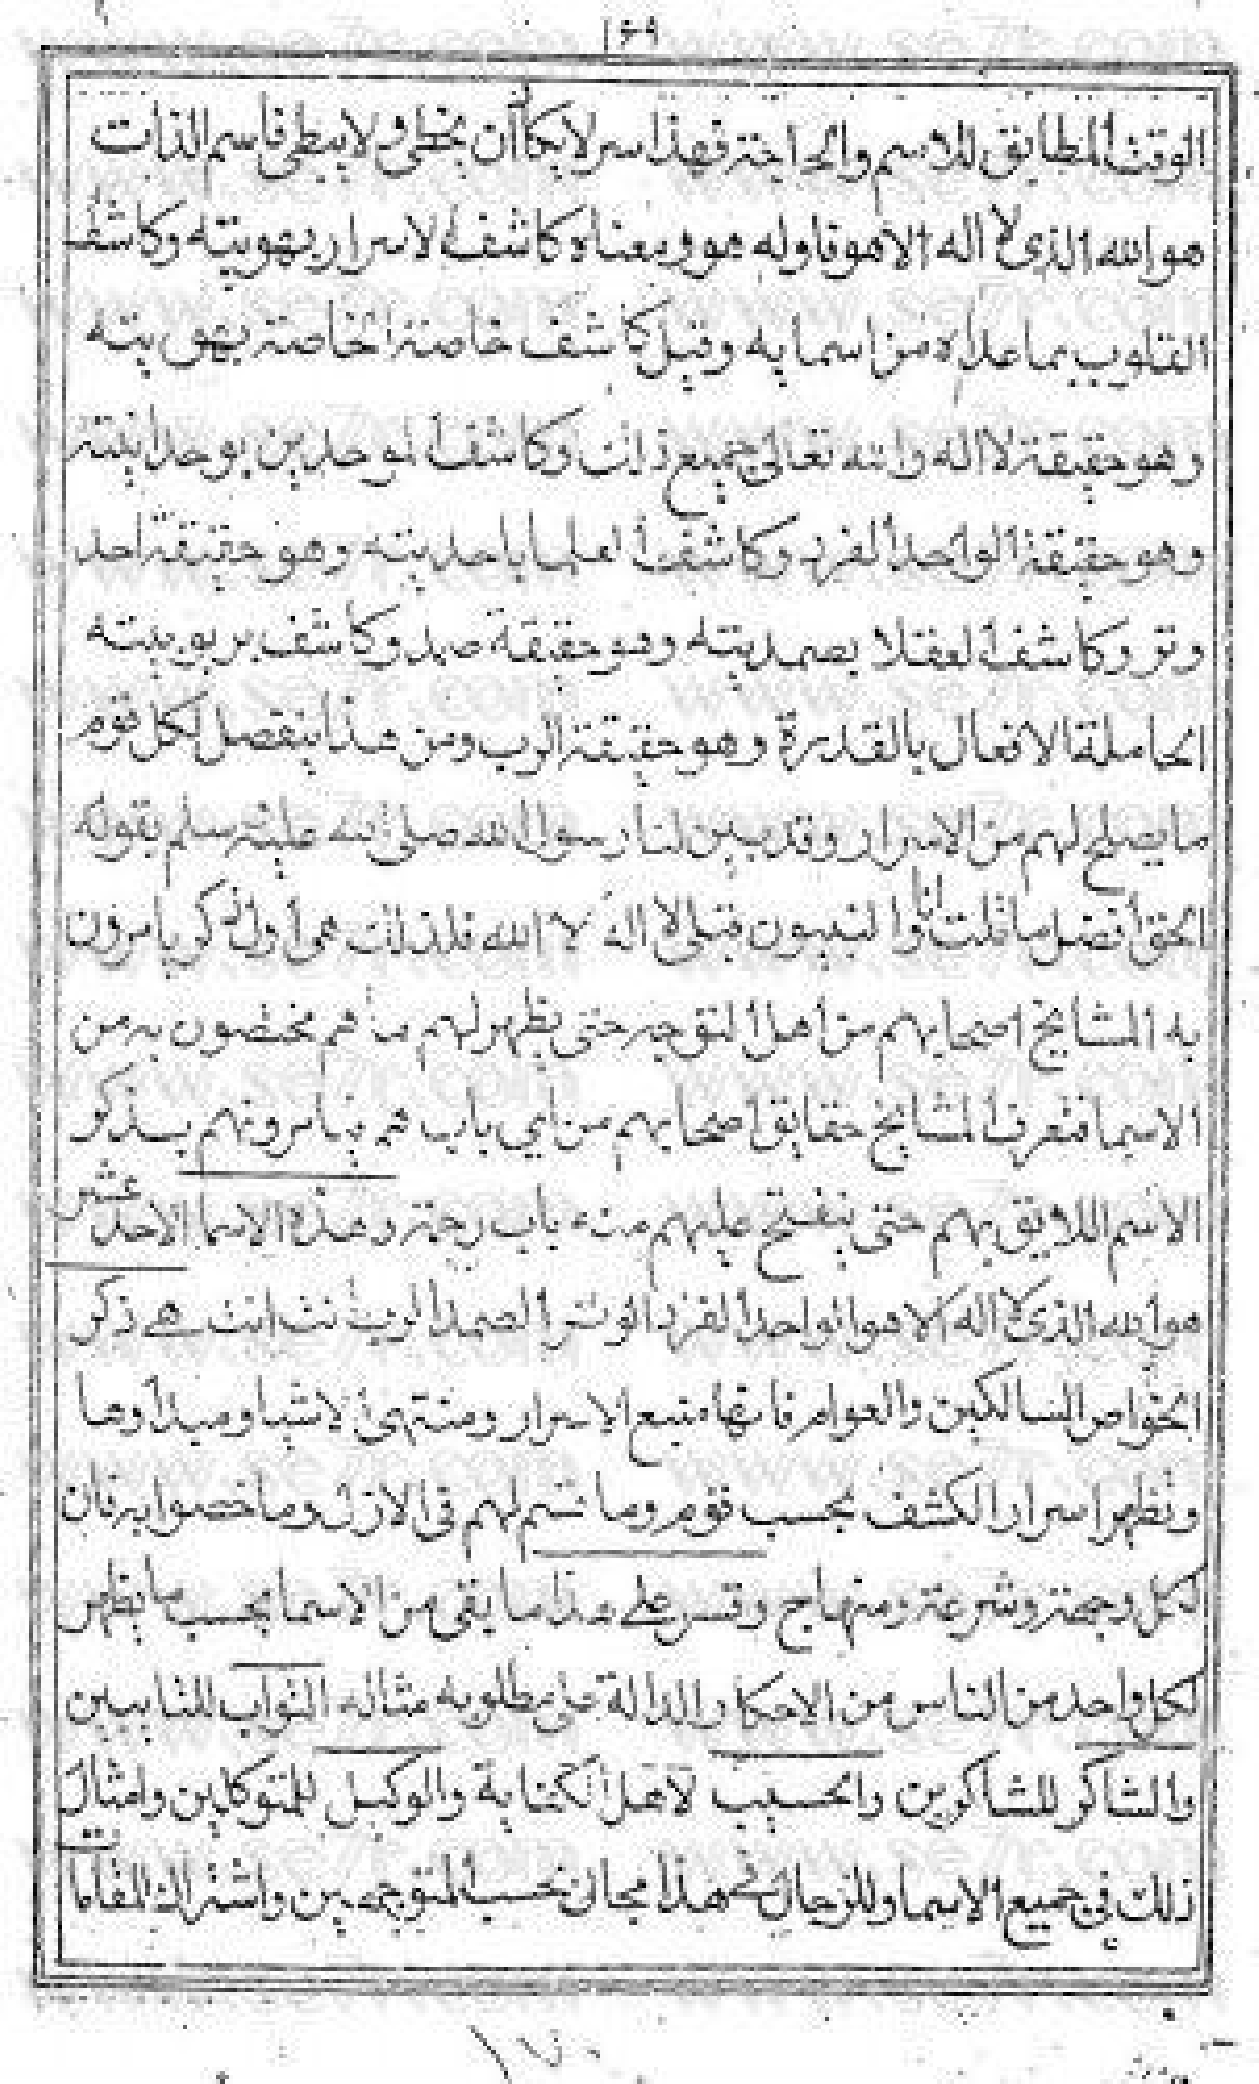 ١٦٩
الوقت المطابق للاسم والحاجة فهذا سر لا يكاد أن يخطى ولا يبطى فاسم الذات
هو الله الذى لا اله الا هو فاوله هو ومعناه كاشف الاسرار بهويته وكاشف
القلوب بما عداه من اسمايه وقيل كاشف خاصة الخاصة بهويته
وهو حقيقة لا اله والله تعالى جميع ذلك وكاشف الموحدين بوحدانيته
وهو حقيقة الواحد الفرد وكاشف العلما باحديته وهو حقيقة احد
وتر وكاشف العقلا بصمديته وهو حقيقة صمد وكاشف بربوبيته
الافعال بالقدرة وهو حقيقة الرب ومن هذا ينفصل لكل قوم
ما يصلح لهم من الاسرار وقد بين لنا رسول الله صلى الله عليه وسلم بقوله
الحق أفضل ما قلت أنا والنبيون قبلى لا اله الا الله فلذلك هى أول ذكر يامرون
به المشايخ اصحابهم من أهل التوجه حتى يظهر لهم ما هم مخصوص به من
الاسما فتعرف المشايخ حقايق اصحابهم من اى باب هم يامرونهم بذكر
الاسم اللايق بهم حتى ينفتح عليهم منه باب رحمة وهذه الاسما الاحد عشر
هو الله الذى لا اله الا هو الواحد الفرد الوتر الصمد الرب انت انت هي ذكر
الخواص السالكين والعوام فانها منبع الاسرار ومنتهى الاشيا ومبداوها
وتظهر اسرار الكشف بحسب قوم وما قسم لهم فى الازل وما خصوا به فان
لكل وجهة وشرعة ومنهاج وقس على هذا ما بقى من الاسما بحسب ما يظهر
لكل واحد من الناس من الاحكام الدالة على مطلوبه مثاله التواب للتايبين
والشاكر للشاكرين والحسيب لاهل الكفاية والوكيل للمتوكلين وامثال
ذلك فى جميع الاسما وللرجال فى هذا مجال بحسب المتوجهين واشتراك المقامات
١٧٠